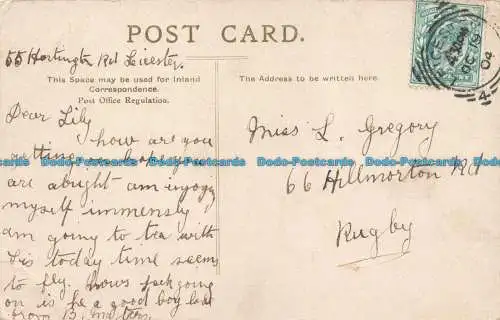 POST CARD.
55 Hartington Rd Leicester
This Space may be used for Inland
Correspondence.
Post Office Regulation.
The Address to be written here.
Dear Lily
how are you
getting on hope you
are alright am enjoying
myself immensly I
am going to tea with
Lis today time seems
to fly. hows jack going
on is he a good boy
from B.
Miss L. Gregory
66 Hillmorton Rd
Rugby
LEICESTER
OC 19
04
Dodo-Postcards Dodo-Postcards Dodo-Postcards Dodo-Postcards